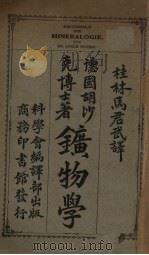 MINERALOGIE.
桂林馬君武譯
德國胡沙
克博士著
鑛物學
科學會編譯部出版
商務印書館發行